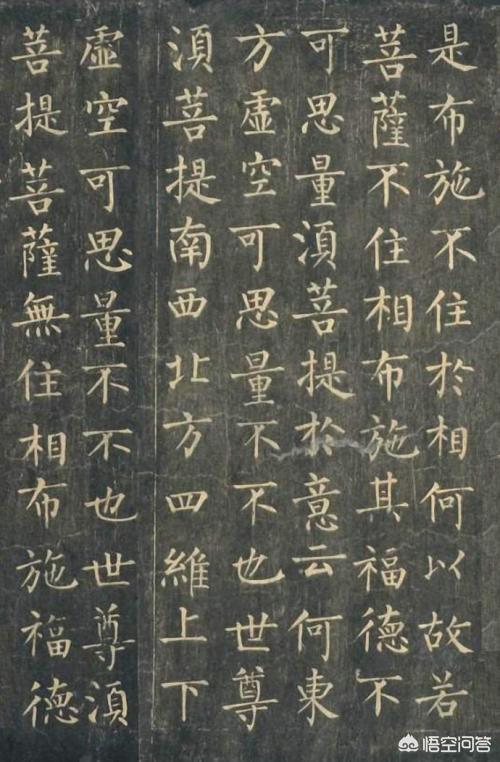 是布施不住於相何以故若
菩薩不住相布施其福德不
可思量須菩提於意云何東
方虛空可思量不不也世尊
須菩提南西北方四維上下
虛空可思量不不也世尊須
菩提菩薩無住相布施福德
悟空问答